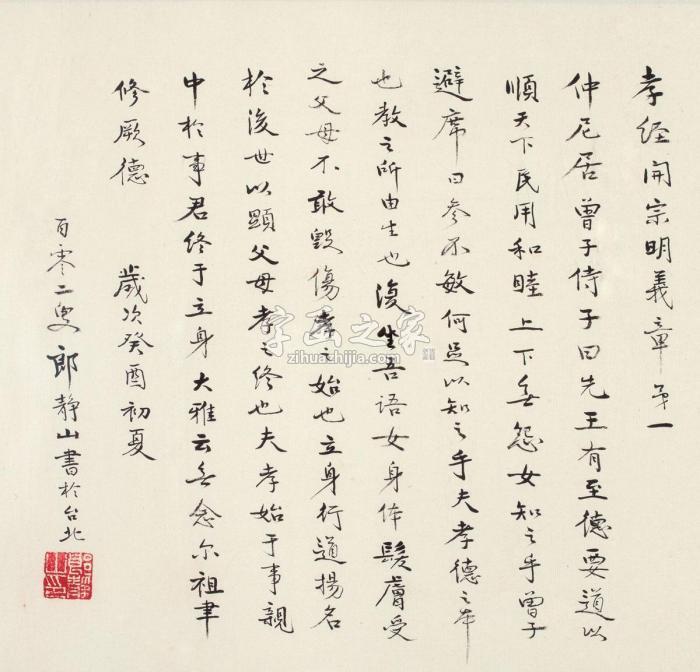 孝经開宗明義章 第一
仲尼居曾子侍子曰先王有至德要道以
順天下民用和睦上下无怨女知之乎曾子
避席曰参不敏何足以知之乎夫孝德之本
也教之所由生也復坐吾语女身体髮膚受
之父母不敢毀傷孝之始也立身行道揚名
於後世以顯父母孝之終也夫孝始于事親
中於事君终于立身大雅云无念尔祖聿
修厥德 歲次癸酉初夏
百零二叟郎静山書於台北
字画之家
zihuashijia.com